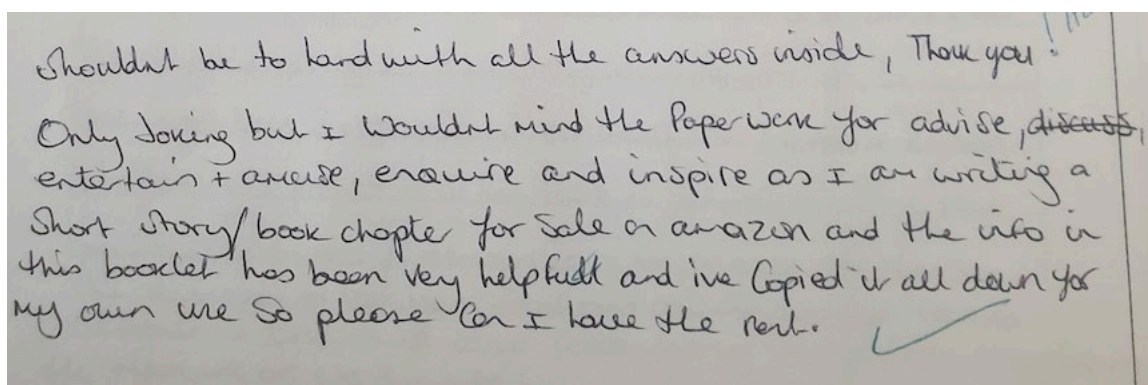 Shouldnt be to hard with all the answers inside, Thank you!
Only Joking but I Wouldnt mind the Paperwork for advise, discuss,
entertain + amuse, enquire and inspire as I am writing a
Short story/book chapter for sale on amazon and the info in
this booklet has been very helpfull and ive Copied it all down for
my own use So please Can I have the rest.